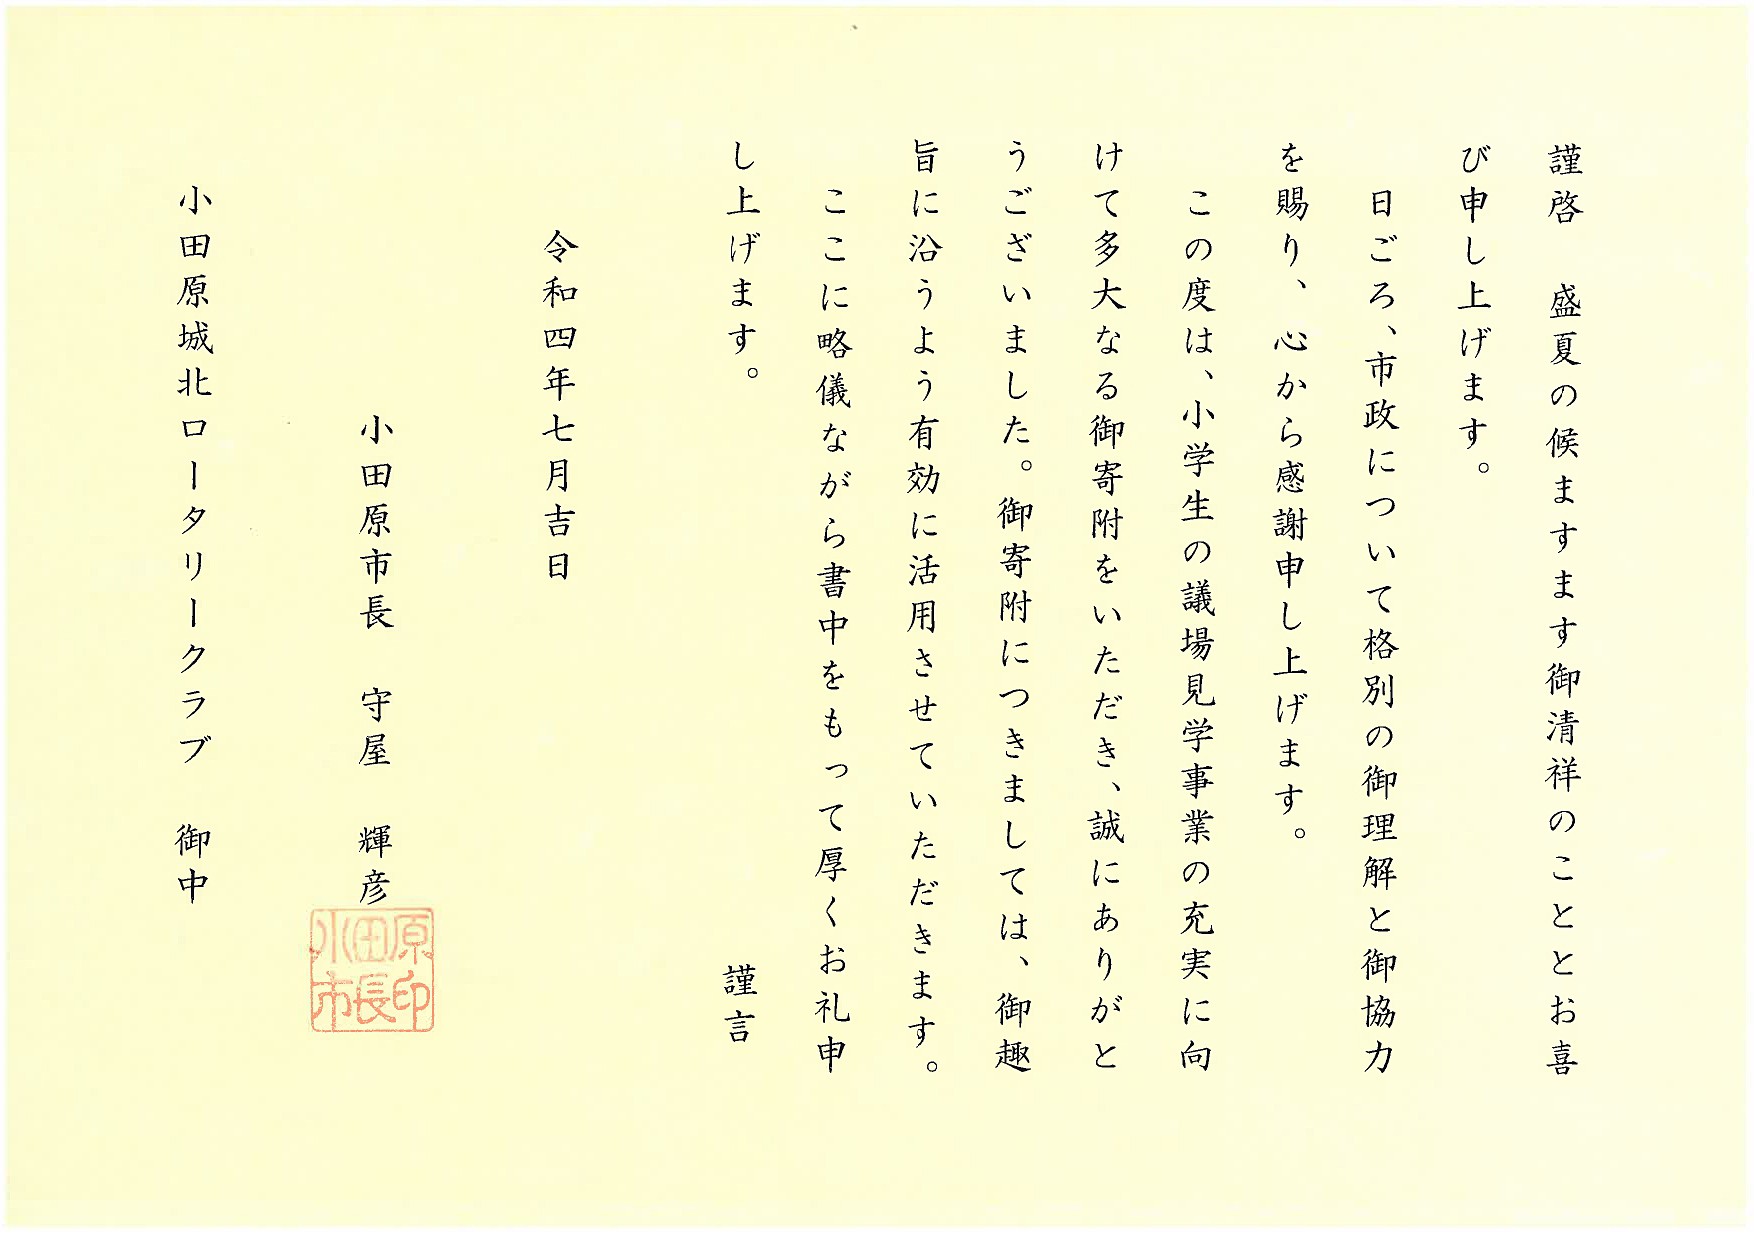 謹啓　盛夏の候ますます御清祥のこととお喜
び申し上げます。
日ごろ、市政について格別の御理解と御協力
を賜り、心から感謝申し上げます。
この度は、小学生の議場見学事業の充実に向
けて多大なる御寄附をいただき、誠にありがと
うございました。御寄附につきましては、御趣
旨に沿うよう有効に活用させていただきます。
ここに略儀ながら書中をもって厚くお礼申
し上げます。　謹言
令和四年七月吉日
小田原市長　守屋　輝彦
小田原市長印
小田原城北ロータリークラブ　御中